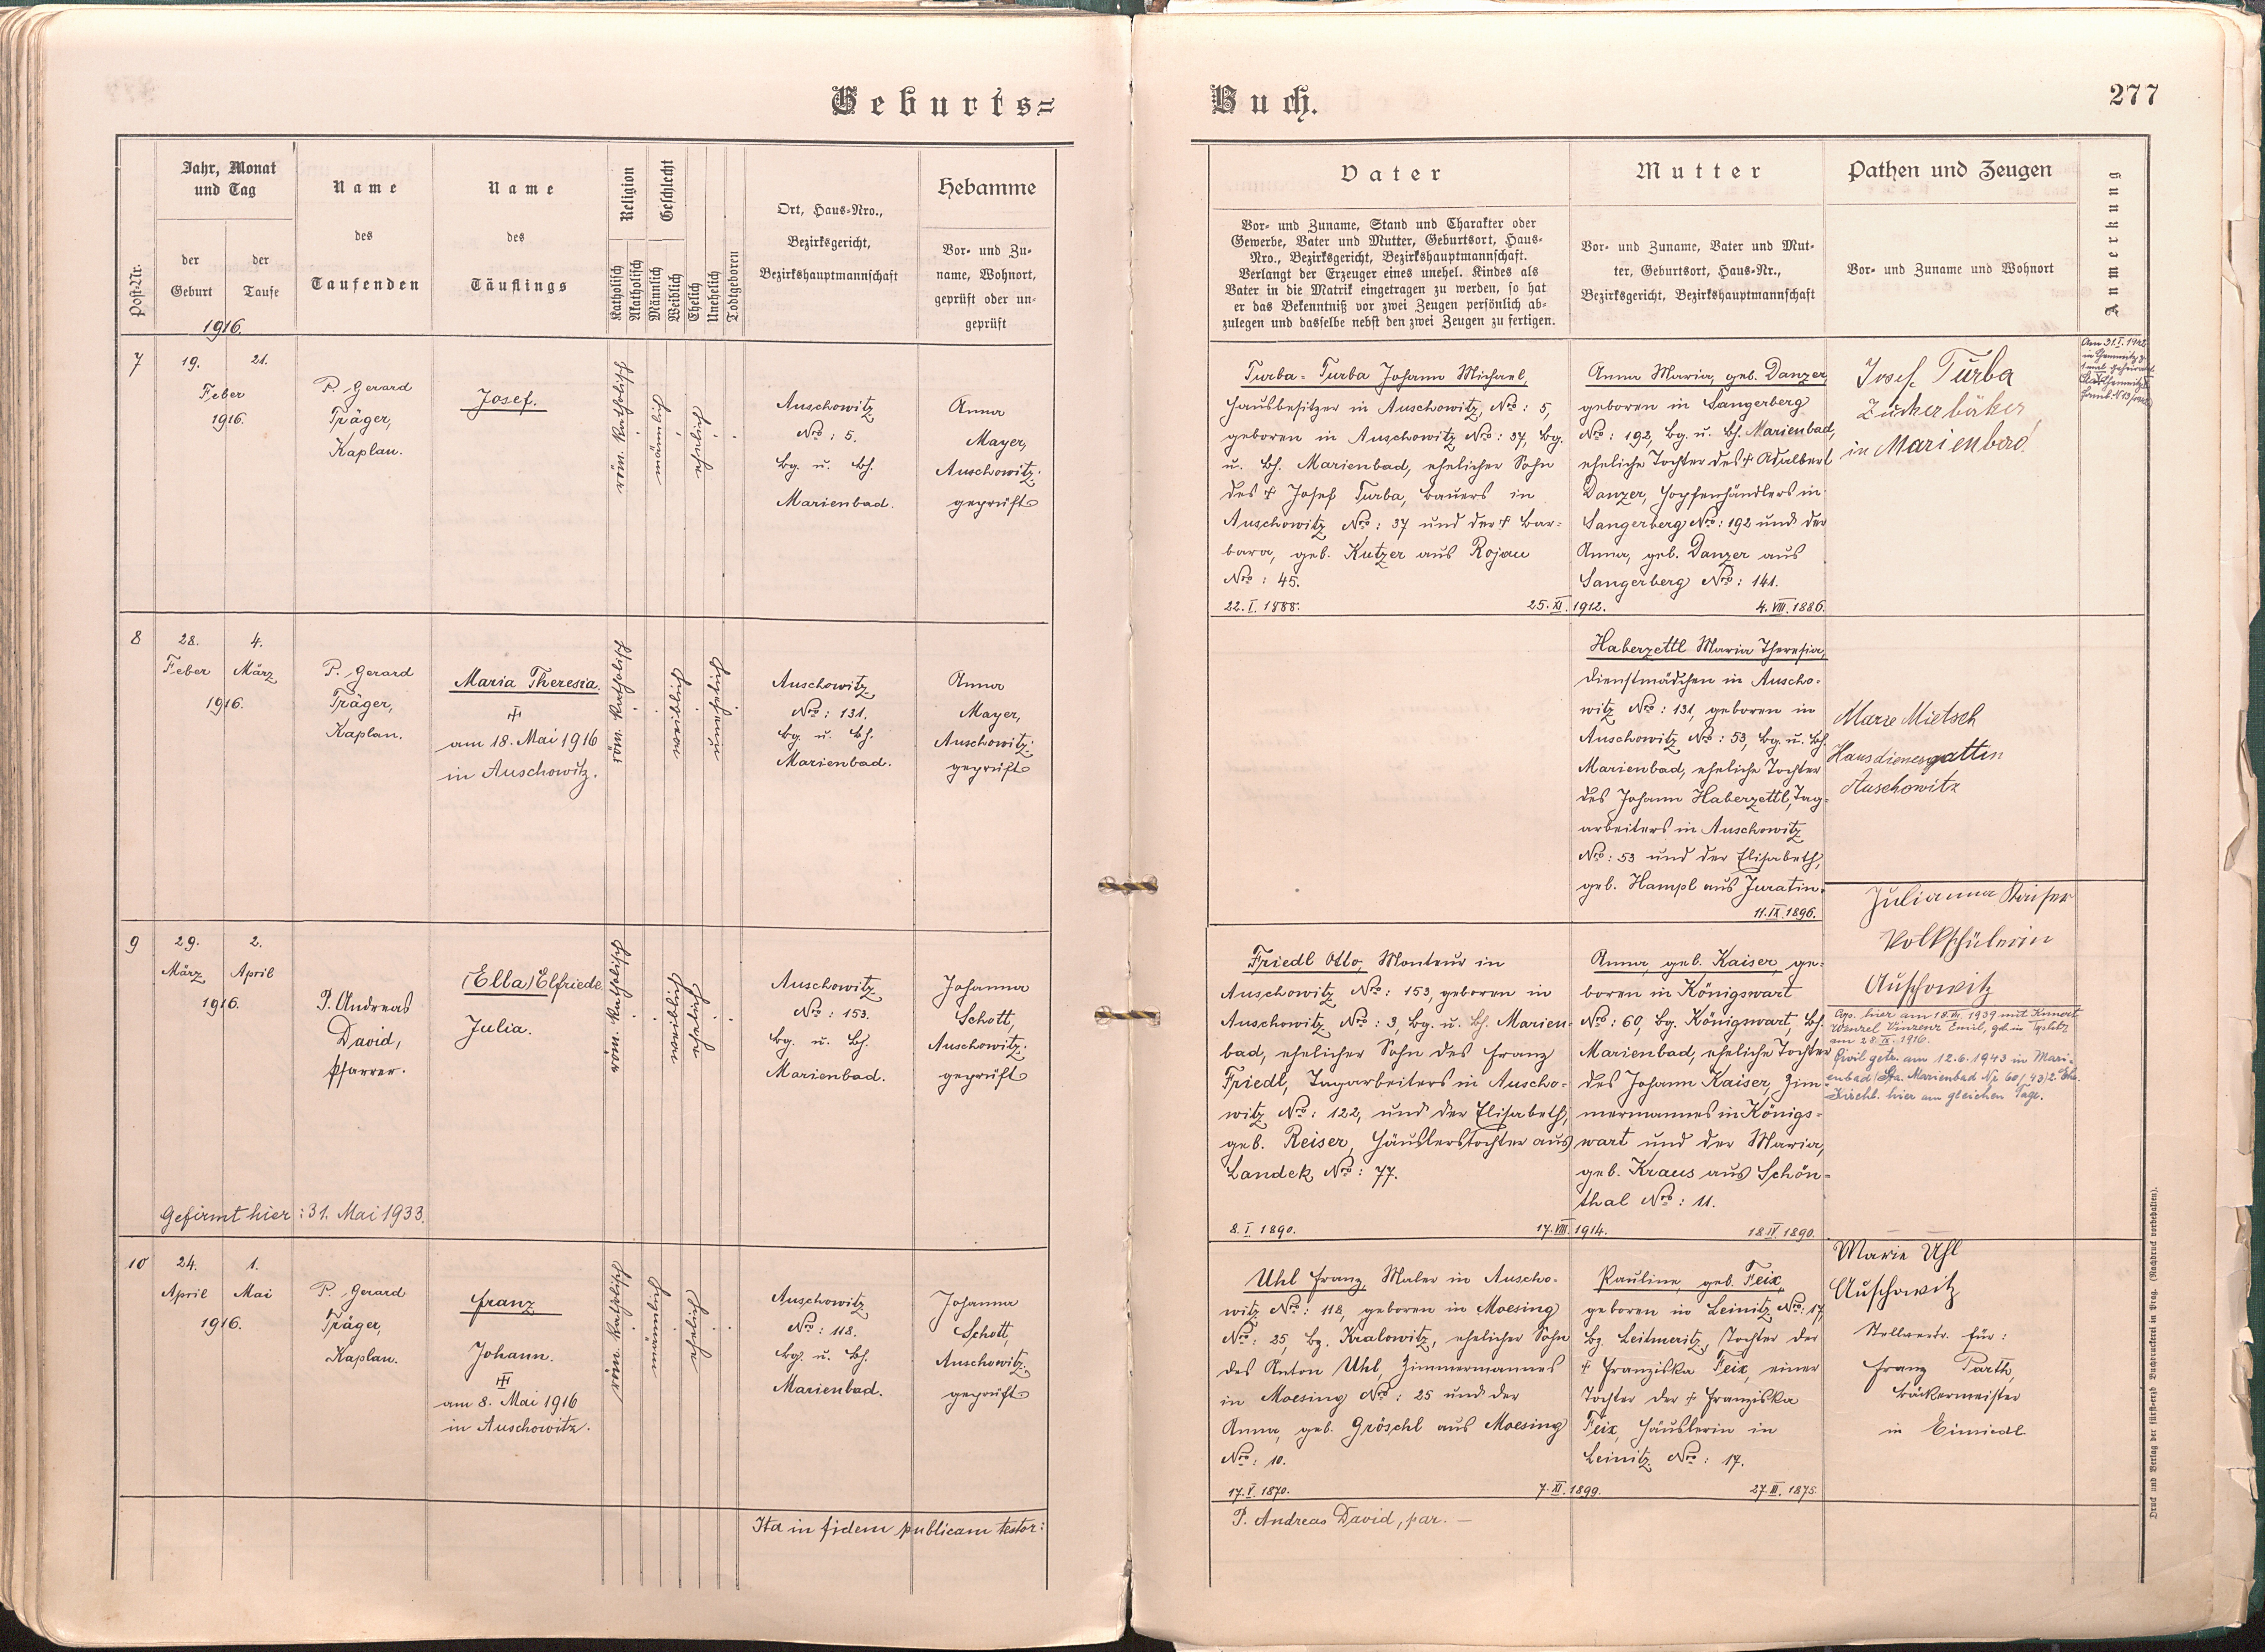 Geburts=
Buch.
277
Post-Nr.
Jahr, Monat
und Tag
der
Geburt
der
Taufe
1916.
Name
des
Taufenden
Name
des
Täuflings
Religion
Katholisch
Akatholisch
Geschlecht
Männlich
Weiblich
Ehelich
Unehelich
Todtgeboren
Ort, Haus-Nro.,
Bezirksgericht,
Bezirkshauptmannschaft
Hebamme
Vor- und Zu-
name, Wohnort,
geprüft oder un-
geprüft
Vater
Vor- und Zuname, Stand und Charakter oder
Gewerbe, Vater und Mutter, Geburtsort, Haus-
Nro., Bezirksgericht, Bezirkshauptmannschaft.
Verlangt der Erzeuger eines unehel. Kindes als
Vater in die Matrik eingetragen zu werden, so hat
er das Bekenntniß vor zwei Zeugen persönlich ab-
zulegen und dasselbe nebst den zwei Zeugen zu fertigen.
Mutter
Vor- und Zuname, Vater und Mut-
ter, Geburtsort, Haus-Nr.,
Bezirksgericht, Bezirkshauptmannschaft
Pathen und Zeugen
Vor- und Zuname und Wohnort
Anmerkung
7
19.
21.
Feber
1916.
P. Gerard
Träger,
Kaplan.
Josef.
röm. katholisch
männlich
ehelich
Auschowitz
Nro: 5.
Bg. u. Bh.
Marienbad.
Anna
Mayer,
Auschowitz:
geprüft
Turba - Turba Johann Michael,
Hausbesitzer in Auschowitz, Nro: 5,
geboren in Auschowitz Nro: 37, Bg.
u. Bh. Marienbad, ehelicher Sohn
des † Josef Turba, Bauers in
Auschowitz Nro: 37 und der † Bar-
bara, geb. Kutzer aus Rojau
Nro: 45.
22. I. 1888.
25. XI. 1912.
Anna Maria, geb. Danzer,
geboren in Sangerberg
Nro: 192, Bg. u. Bh. Marienbad,
eheliche Tochter des † Adalbert
Danzer, Hopfenhändlers in
Sangerberg Nro: 192 und der
Anna, geb. Danzer aus
Sangerberg Nro: 141.
4. VIII. 1886.
Josef Turba
Zuckerbäker
in Marienbad.
Am 31. I. 1942
in Chemnitz z.
1 mal geheiratet
8
28.
4.
Feber
März
1916.
P. Gerard
Träger,
Kaplan.
Maria Theresia.
am 18. Mai 1916
in Auschowitz.
röm. katholisch
weiblich
unehelich
Auschowitz
Nro: 131.
Bg. u. Bh.
Marienbad.
Anna
Mayer,
Auschowitz:
geprüft
Haberzettl Maria Theresia,
Dienstmädchen in Auscho-
witz Nro: 131, geboren in
Auschowitz Nro: 53, Bg. u. Bh.
Marienbad, eheliche Tochter
des Johann Haberzettl, Tag-
arbeiters in Auschowitz
Nro: 53 und der Elisabeth,
geb. Hampl aus Juratin.
11. IX. 1896.
Marie Mietsch
Hausdienersgattin
Auschowitz
9
29.
2.
März
April
1916.
P. Andreas
David,
Pfarrer.
(Ella) Elfriede
Julia.
röm. katholisch
weiblich
ehelich
Auschowitz
Nro: 153.
Bg. u. Bh.
Marienbad.
Johanna
Schott,
Auschowitz:
geprüft
Gefirmt hier: 31. Mai 1933.
Friedl Otto, Monteur in
Auschowitz Nro: 153, geboren in
Auschowitz Nro: 3, Bg. u. Bh. Marien-
bad, ehelicher Sohn des Franz
Friedl, Tagarbeiters in Auscho-
witz Nro: 122, und der Elisabeth,
geb. Reiser, Häuslerstochter aus
Landek Nro: 77.
8. I. 1890.
17. VIII. 1914.
Anna, geb. Kaiser, ge-
boren in Königswart
Nro: 60, Bg. Königswart, Bh.
Marienbad, eheliche Tochter
des Johann Kaiser, Zim-
mermannes in Königs-
wart und der Maria,
geb. Kraus aus Schön-
thal Nro: 11.
18. IV. 1890.
Julianna Kaiser
Volksschülerin
Auschowitz
Cop. hier am 18. 1939 mit
Wenzel Vinzenz Emil, geb. in
am 28. IX. 1916.
Civil getr. am 12.6.1943 in Mari-
enbad (Sta. Marienbad Nr 60/43) 2. Ehe.
Kirchl. hier am gleichen Tage.
10
24.
1.
April
Mai
1916.
P. Gerard
Träger,
Kaplan.
Franz
Johann.
am 8. Mai 1916
in Auschowitz.
röm. katholisch
männlich
ehelich
Auschowitz
Nro: 118.
Bg. u. Bh.
Marienbad.
Johanna
Schott,
Auschowitz:
geprüft
Uhl Franz, Maler in Auscho-
witz Nro: 118, geboren in Moesing
Nro: 25, Bz. Kralowitz, ehelicher Sohn
des Anton Uhl, Zimmermannes
in Moesing Nro: 25 und der
Anna, geb. Gröschl aus Moesing
Nro: 10.
17. V. 1870.
7. XI. 1899.
Pauline, geb. Feix,
geboren in Leinitz Nro: 17,
Bz. Leitmeritz, Tochter der
† Franziska Feix, einer
Tochter der † Franziska
Feix, Häuslerin in
Leinitz Nro: 17.
27. III. 1875.
Marie Uhl
Auschowitz
Stellvertr. für:
Franz Parth,
Bäckermeister
in Einsiedl
Ita in fidem publicam testor:
P. Andreas David, par. —
Druck und Verlag der fürst-erzb Buchdruckerei in Prag. (Nachdruck vorbehalten).